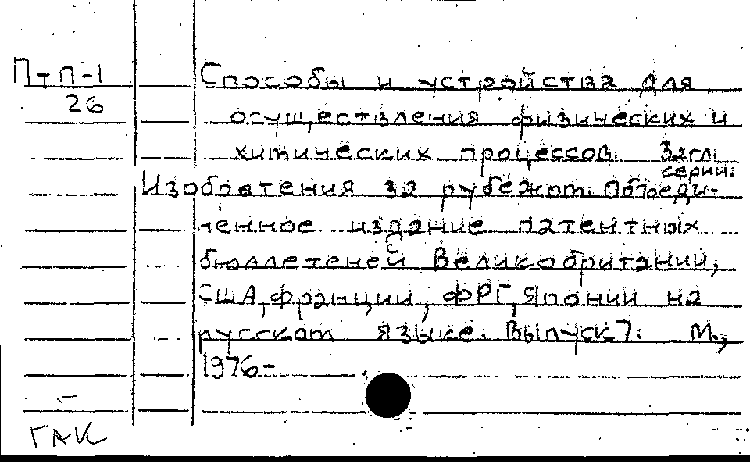 П-П-1 Способы и устройства для
26
осуществления физических и
химических процессов. Загл.
серии:
Изобретения за рубежом. Объеди-
ненное издание патентных
бюллетеней Великобритании,
США, Франции, ФРГ, Японии на
русском языке. Выпуск 7. М.,
1976-
ГАК